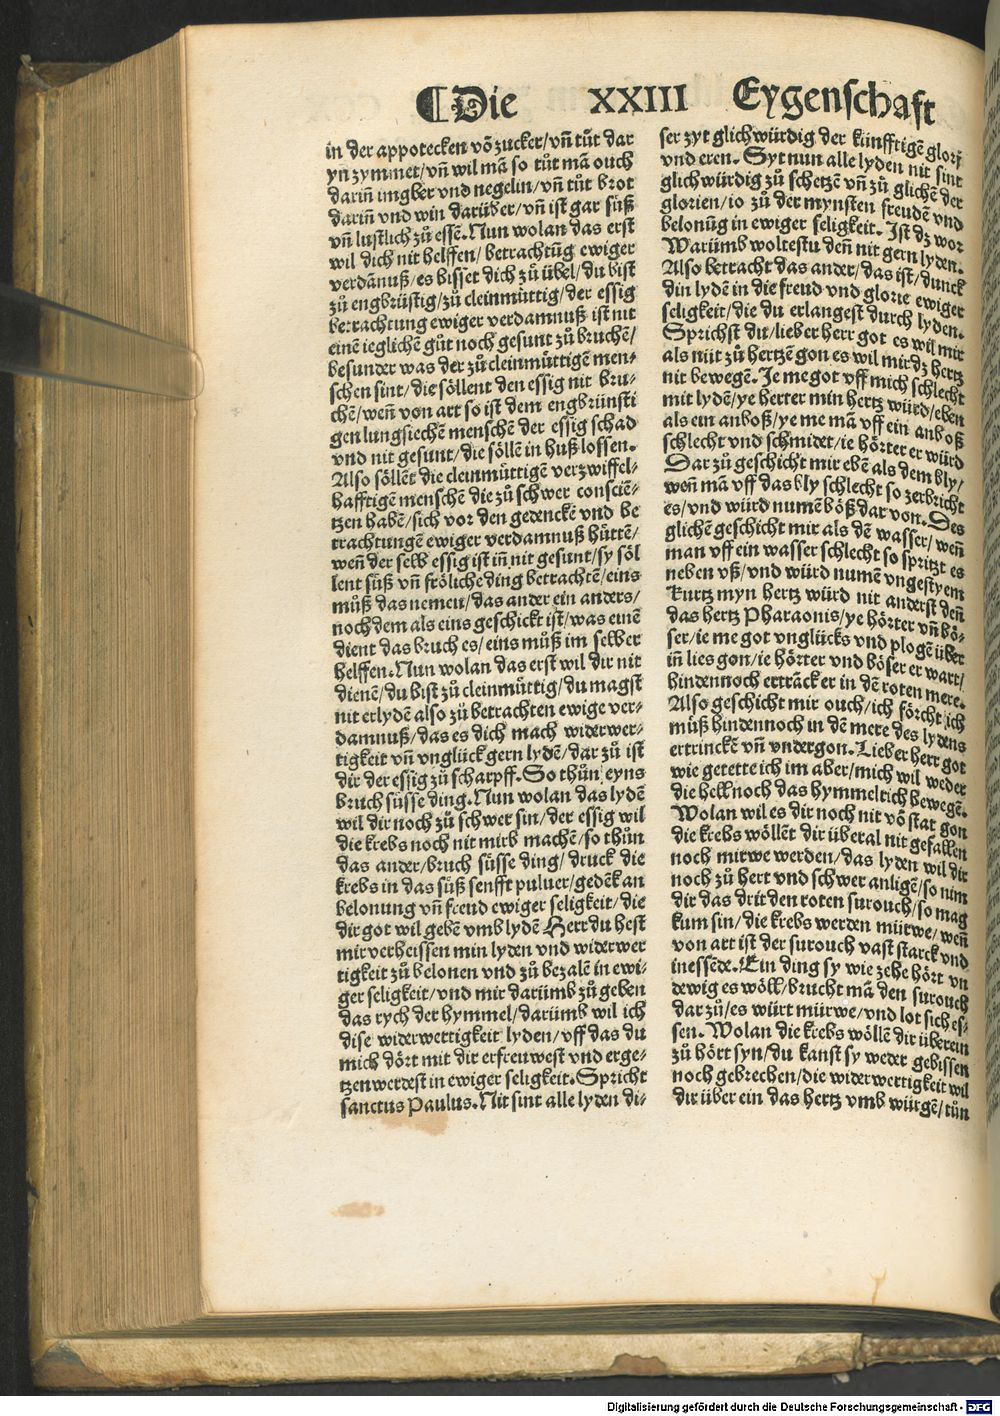 ¶Die XXIII Eygenschaft
in der appotecken võ zucker/vñ tůt dar
yn zymmet/vñ wil mã so tůt mã ouch
dariñ imgber vnd negelin/vñ tůt brot
dariñ vnd win darüber/vñ ist gar süß
vñ lustlich zů essẽ. Nun wolan das erst
wil dich nit helffen/ betrachtũg ewiger
verdãnuß/es bisset dich zů übel/du bist
zů engbrüstig/zů cleinmüttig/der essig
betrachtung ewiger verdamnuß ist nit
einẽ ieglichẽ gůt noch gesunt zů bruchẽ/
besunder was der zů cleinmüttigẽ men⸗
schen sint/die söllent den essig nit bru⸗
chẽ/weñ von art so ist dem engbrünsti
gen lungsiechẽ menschẽ der essig schad
vnd nit gesunt/die söllẽ in huß lossen.
Also söllẽt die cleinmüttigẽ verzwiffel⸗
hafftigẽ menschẽ die zů schwer consciẽ⸗
tzen habẽ/sich vor den gedenckẽ vnd be
trachtungẽ ewiger verdamnuß hüttẽ/
weñ der selb essig ist iñ nit gesunt/sy söl
lent süß vñ fröliche ding betrachtẽ/eins
můß das nemen/das ander ein anders/
noch dem als eins geschickt ist/was einẽ
dient das bruch es/eins můß im selber
helffen. Nun wolan das erst wil dir nit
dienẽ/du bist zů cleinmüttig/du magst
nit erlydẽ also zů betrachten ewige ver⸗
damnuß/das es dich mach widerwer⸗
tigkeit vñ vnglück gern lydẽ/dar zů ist
dir der essig zů scharpff. So thůn eyns
bruch süsse ding. Nun wolan das lydẽ
wil dir noch zů schwer sin/der essig wil
die krebs noch nit mirb machẽ/so thůn
das ander/bruch süsse ding/ druck die
krebs in das süß senfft puluer/gedẽk an
belonung vñ freud ewiger seligkeit/die
dir got wil gebẽ vmb lydẽ Herr du hest
mir verheissen min lyden vnd widerwer
tigkeit zů belonen vnd zů bezalẽ in ewi⸗
ger seligkeit/vnd mir darũmb zů geben
das rych der hymmel/darũmb wil ich
dise widerwertigkeit lyden/vff das du
mich dört mit dir erfreuwest vnd erge⸗
tzen werdest in ewiger seligkeit. Spricht
sanctus Paulus. Nit sint alle lyden di⸗
ser zyt glichwürdig der künfftigẽ glory
vnd eren. Syt nun alle lyden nit sint
glichwürdig zů schetzẽ vñ zů glichẽ der
glorien/io zů der mynsten freudẽ vnd
belonũg in ewiger seligkeit. Ist dz wor
Warũmb woltestu deñ nit gern lyden.
Also betracht das ander/das ist/dunck
din lydẽ in die freud vnd glorie ewiger
seligkeit/die du erlangest durch lyden.
Sprichst du/lieber herr got es wil mir
als nüt zů hertzẽ gon es wil mir dz hertz
nit bewegẽ. Je me got vff mich schlecht
mit lydẽ/ye herter min hertz würd/eben
als ein anboß/ye me mã vff ein anboß
schlecht vnd schmidet/ie hörter er würd
Dar zů geschicht mir ebẽ als dem bly/
weñ mã vff das bly schlecht so zerbricht
es/vnd würd numẽ bößdar von. Des
glichẽ geschicht mir als dẽ wasser/weñ
man vff ein wasser schlecht so spritzt es
neben vß/vnd würd numẽ vngestyem
Kurtz myn hertz würd nit anderst deñ
das hertz Pharaonis/ye hörter vñ bö⸗
ser/ie me got vnglücks vnd plogẽ über
iñ lies gon/ie hörter vnd böser er wart/
hindennoch ertrãck er in dẽ roten mere.
Also geschicht mir ouch/ich förcht ich
můß hindennoch in dẽ mere des lydens
ertrinckẽ vñ vndergon. Lieber herr got
wie getette ich im aber/mich wil weder
die hell noch das hymmelrich bewegẽ.
Wolan wil es dir noch nit võ stat gon
die krebs wöllẽt dir überal nit gefallen
noch mirwe werden/das lyden wil dir
noch zů hert vnd schwer anligẽ/so nim
dir das drit den roten surouch/so mag
kum sin/die krebs werden mürwe/weñ
von art ist der surouch vast starck vnd
inessẽde. Ein ding sy wie zehe hört vn
dewig es wöll/brucht mã den surouch
dar zů/es würt mürwe/vnd lot sich es⸗
sen. Wolan die krebs wöllẽ dir überein
zů hört syn/du kanst sy weder gebissen
noch gebrechen/die widerwertigkeit wil
dir über ein das hertz vmb würgẽ/tůn
Digitalisierung gefördert durch die Deutsche Forschungsgemeinschaft - DFG